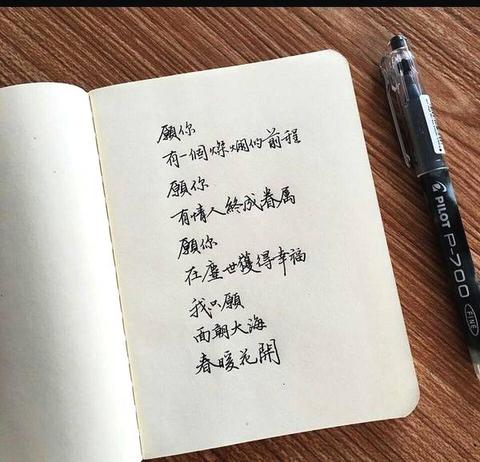 願你
有一個燦爛的前程
願你
有情人終成眷属
願你
在塵世獲得幸福
我只願
面朝大海
春暖花開
PILOT P-700
FINE